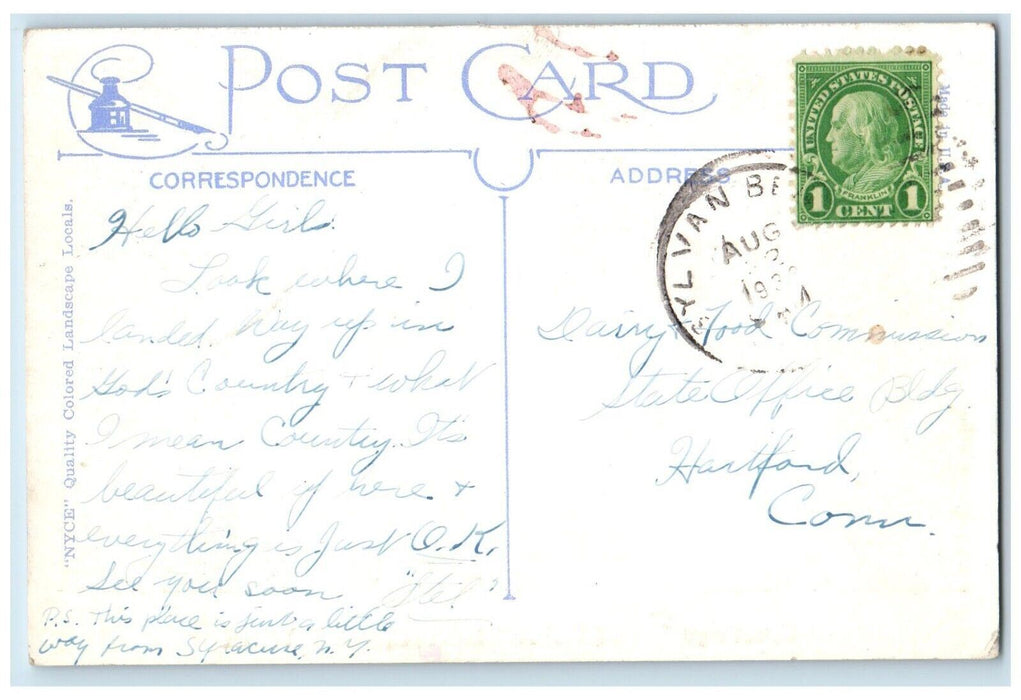 POST CARD
CORRESPONDENCE
ADDRESS
"NYCE" Quality Colored Landscape Locals.
Made in U.S.A.
UNITED STATES POSTAGE
FRANKLIN
1 CENT 1
SYLVAN BE
AUG
193
Hello Girls.
Look where I
landed. Way up in
God's Country + what
I mean Country. It's
beautiful up here +
everything is Just O.K.
See you soon
P.S. This place is just a little
way from Syracuse, N.Y.
Dairy + Food Commission
State Office Bldg.
Hartford,
Conn.